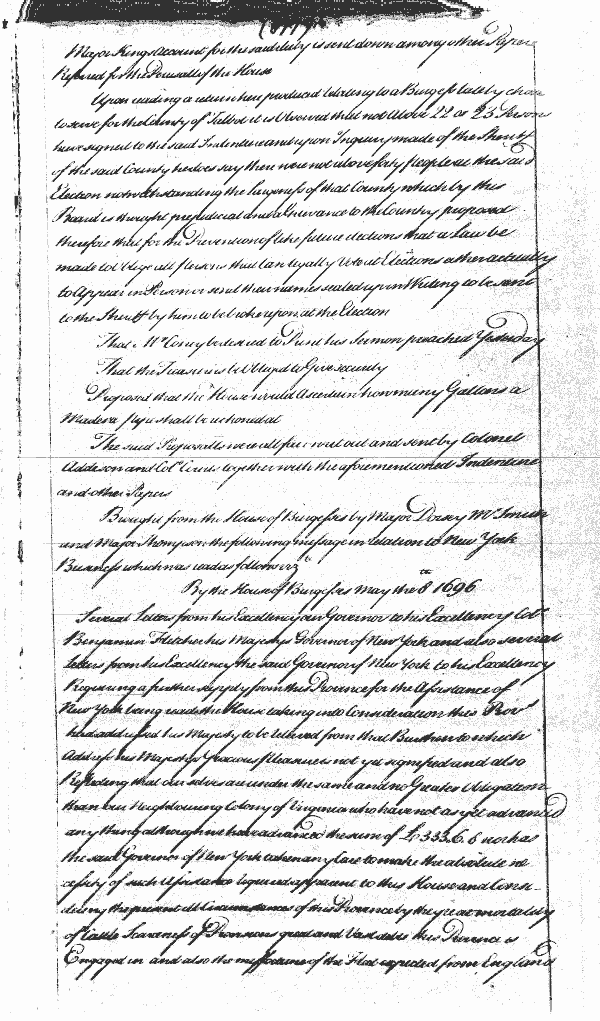 Major Kings account for the said duty is sent down among other Papers
Refered for the Perusall of the House
Upon reading a return here produced relating to a Burgess lately chose
to serve for the County of Talbot it is Observed that not above 22 or 23 Persons
have signed to the said Indenture and upon Inquiry made of the Sheriff
of the said County he does say there were not above forty people at the said
Election notwithstanding the largeness of that County which by this
Board is thought prejudicial and a Grievance to the Country proposed
therefore that for the Prevention of like future elections that a Law be
made to Oblige all persons that can legally Vote at Elections either actually
to Appear in Person or send their names sealed up in Writing to be sent
to the Sheriff by him to be broke upon at the Election
That Mr Coney be desired to Print his Sermon preached Yesterday
That the Treasurers be Obliged to Give security
Proposed that the House would Ascertain how many Gallons a
Madera pipe shall be reckoned at
The said Proposalls were all fair writ out and sent by Colonel
Addison and Col. Courts together with the aforementioned Indenture
and other Papers
Brought from the House of Burgesses by Major Dorsey Mr Smith
and Major Thompson the following message in relation to New York
Business which was read as follows viz
By the House of Burgesses May the 8th 1696
Several Letters from his Excellency our Governor to his Excellency Col.
Benjamin Fletcher his Majestys Governor of New York and also several
letters from his Excellency the said Governor of New York to his Excellency
Requiring a further supply from this Province for the Assistance of
New York being read the House taking into Consideration this Prov
had addressed his Majesty to be relieved from that Burthen to which
Address his Majestys Gracious pleasure is not yet signified and also
Reflecting that ourselves are under the same and no Greater Obligation
than our Neighbouring Colony of Virginia who have not as yet advanced
any thing although we have advanced the sum of £333.6.8 nor has
the said Governor of New York taken any Care to make the absolute ne
cessity of such Assistance required apparent to this House and Consi-
dering the present ill Circumstances of this Province by the great mortality
of Cattle Scarceness of Provisions great and Vast debts this Province is
Engaged in and also the misfortune of the Fleet expected from England